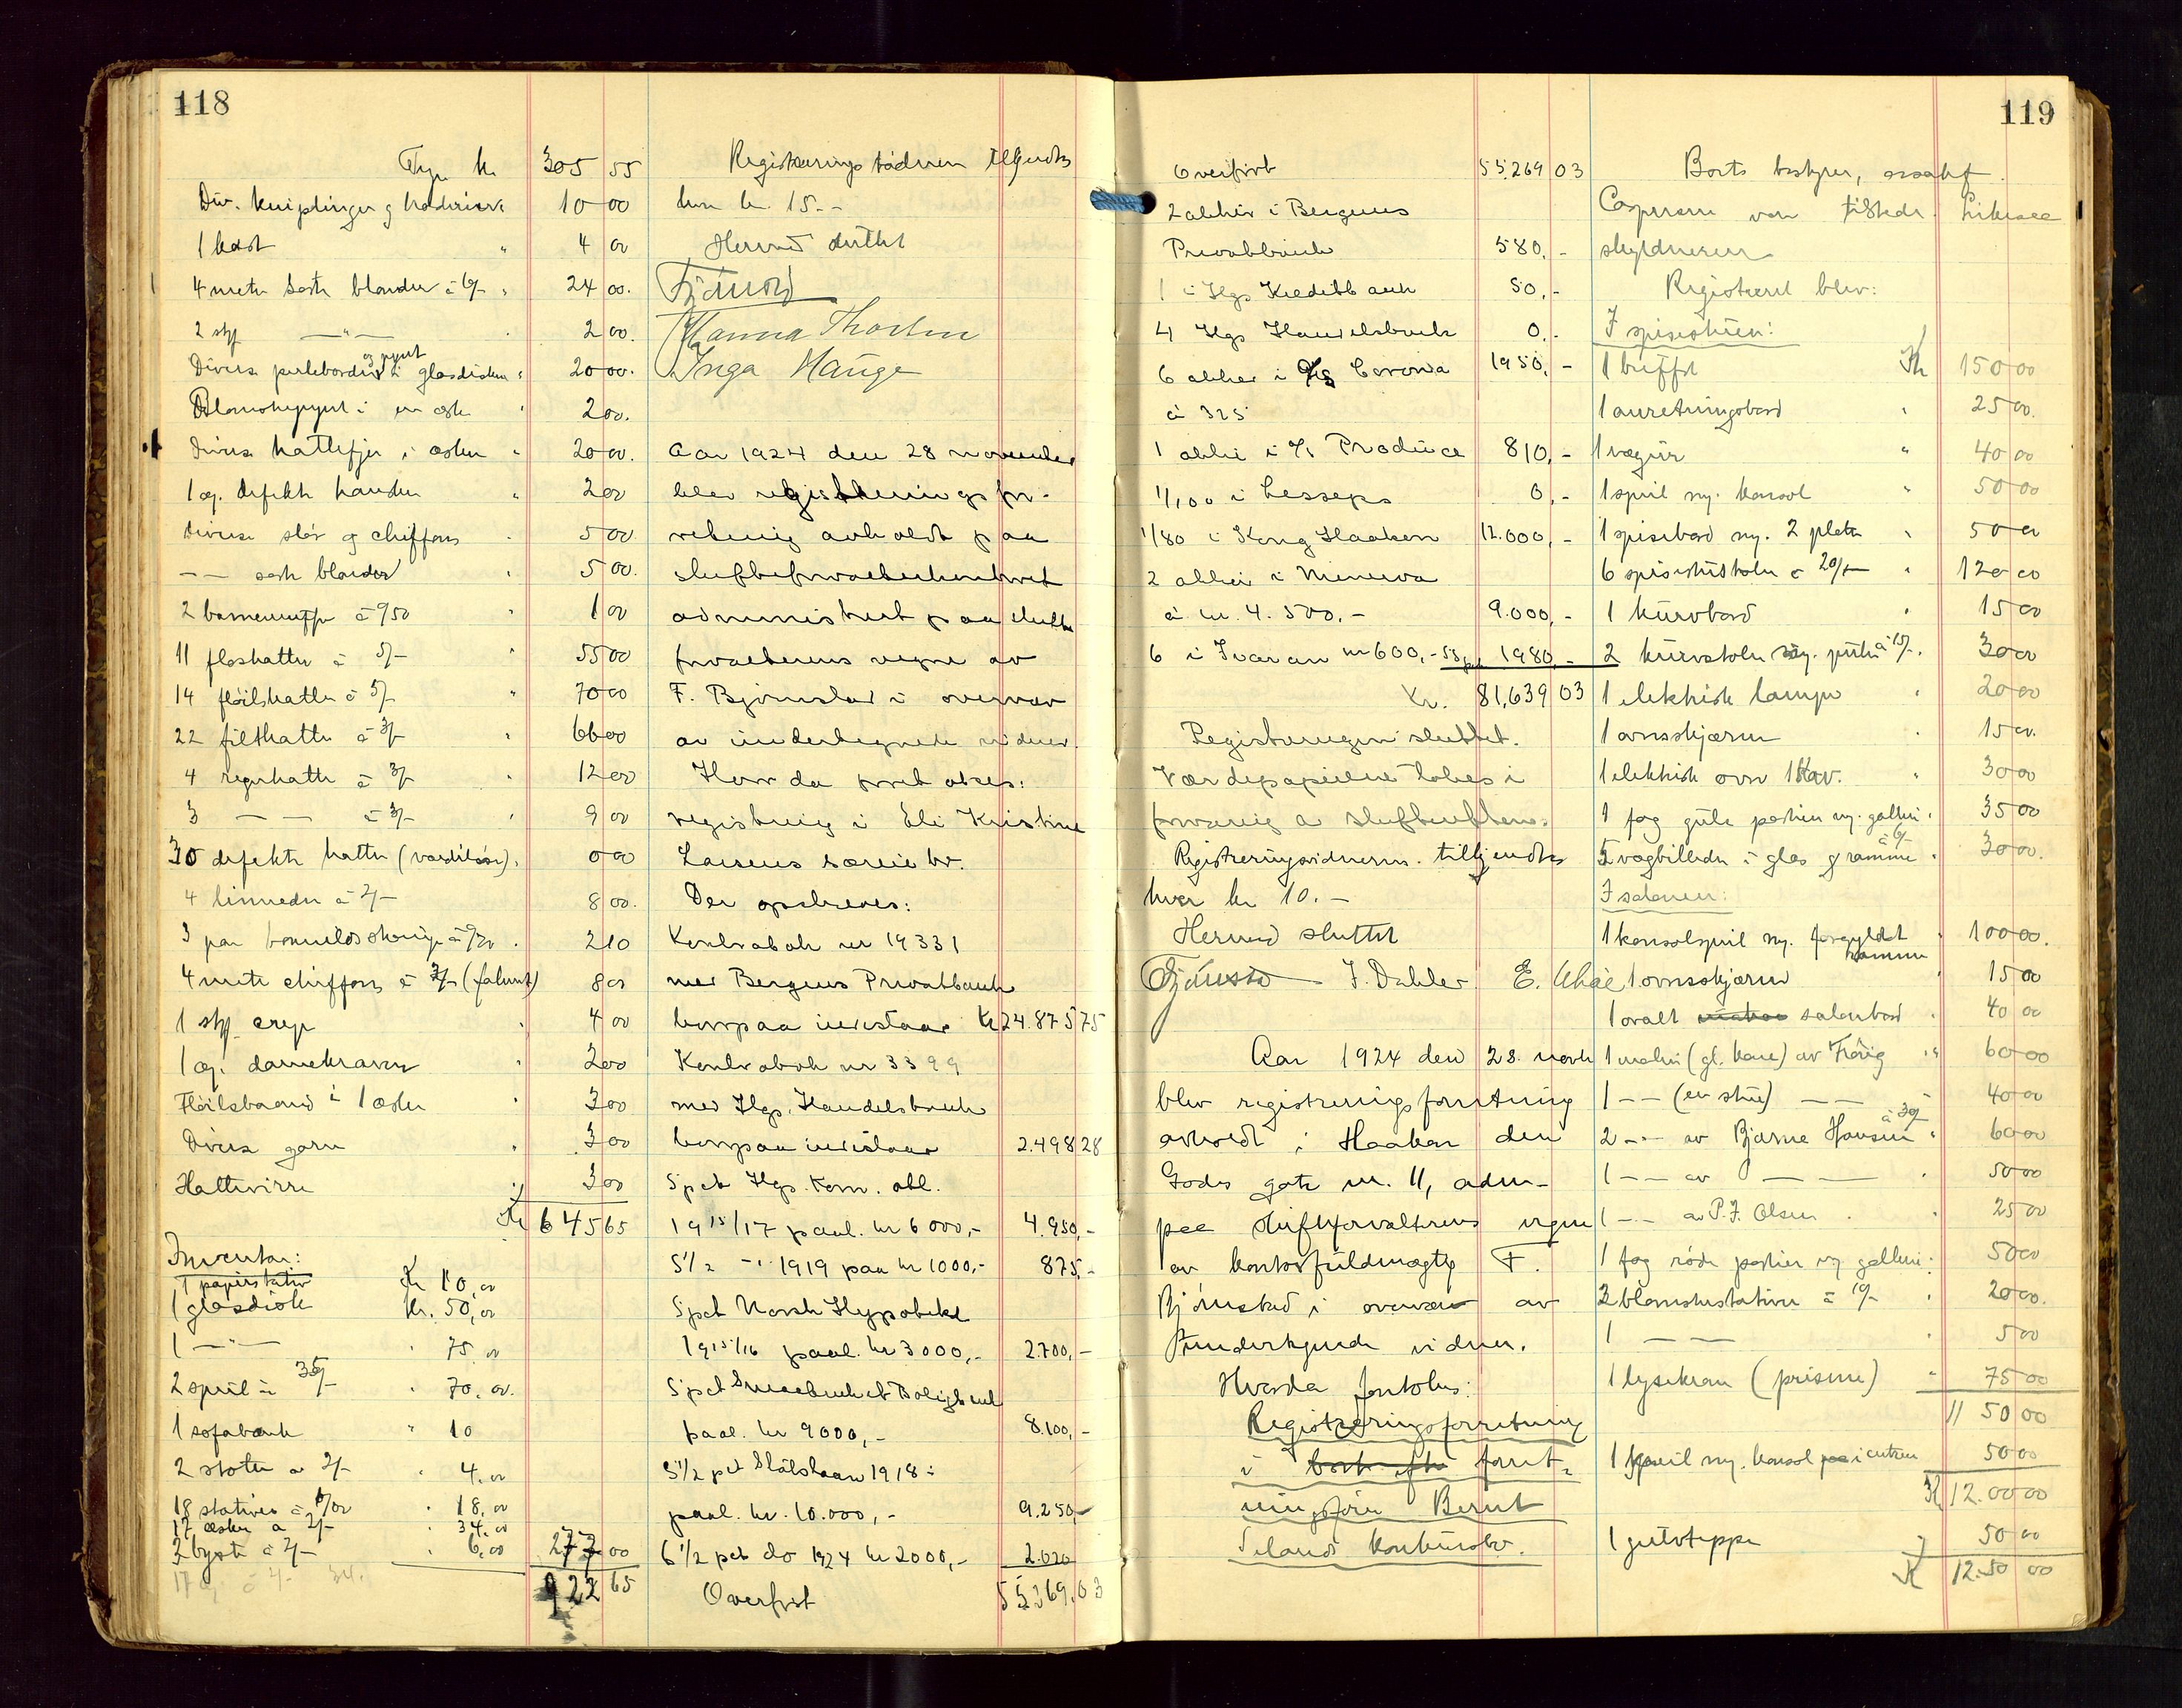 118
kr 305 55
Div. kniplinger g broderier 10 00
1 kost " 4 00
4 meter sorte blonder à 6/- " 24 00.
2 stp —"— 2 00.
og pynt
Diverse perleborder i glasdisken 20 00.
Blomsterpynt i en eske 2 00.
Diverse hattefjer i esker 20 00.
1 eg. defekte hansker " 2 00
Diverse slør g chiffons 5 00
—— sorte blonder 5 00.
2 barnemuffer à 0/50 1 00
11 floshatter à 5/- 55 00
14 fløilshatter à 5/- 70 00
22 filthatter à 3/- 66 00
4 regnhatte à 3/- 12 00
3 — — à 3/- 9 00
30 defekte hatter (værdiløse) 0 00
4 linneder à 2/- 8 00.
3 par à 0/70 2 10
4 meter chiffons à 2/- (falmet) 8 00
1 stp crepe 4 00
1 eg. damekraver 2 00
Fløilsbaand i 1 eske 3 00
Divers garn 3 00
Hattevirre 3 00
Kr 645 65
Inventar:
1 papirstativ Kr 10,00
1 glasdisk Kr. 50,00
1 —"— " 75,00
2 speil à 35/- " 70,00.
1 sofabænk " 10
2 stoler a 2/- " 4,00
18 stativer à 1/00 " 18,00
17 esker a 2/- " 34,00
3 byster à 2/- " 6,00 277 00
922 65
Registreringsvidnerne tilkjendtes
hver kr. 15.--
Herved sluttet
Bjørnstad
Hanna Thorsen
Inga Hauge
Aar 1924 den 28 november
blev registreringsfor-
retning avholdt paa
skifteforvalterkontoret
administrert paa skifte
forvalterens vegne av
F. Bjørnstad i overvær
av undertegnede vidner.
Hvor da foretokes:
registrering i Eli Kristine
Larsens særeie bo.
Der opskreves:
Kontrabok nr 19331
med Bergens Privatbank
hvorpaa indestaar Kr 24.875 75
Kontrabok nr 3399
med Hgs. Handelsbank
hvorpaa indestaar 2.498 28
5 pct Hgs. Kom. obl.
19 15/17 paal. kr 6000,- 4.950,-
5 1/2 -"- 1919 paa kr 1000,- 875,-
5 pct Norsk Hypotekt
19 15/16 paal. kr 3000,- 2.700,-
5 pct Smaabruk et Boligbank
paal. kr 9000,- 8.100,-
5 1/2 pct Statslaan 1918:
paal. kr. 10.000,- 9.250,-
6 1/2 pct do 1924 kr 2000,- 2.020
Overført 55269.03
119
Overført 55.269 03
2 aktier i Bergens
Privatbank 580,-
1 i Hgs Kreditbank 50,-
4 Hgs Handelsbank 0,-
6 aktier i Corona 1950,-
à 325
1 aktie i Produce 810,-
1/100 i Lesseps 0,-
1/80 i Kong Haakon 12.000,-
2 aktier i Minerva
à kr. 4.500,- 9.000,-
6 i Ivaran kr 600,- 55 pct 1980,-
Kr. 81.639 03
Registreringen sluttet.
Værdipapirene tokes i
forvaring av skifteretten.
Registreringsvidnerne tilkjendtes
hver kr 10.-
Herved sluttet
Bjørnstad J. Dahler E.
Aar 1924 den 28. novbr
blev registreringsforretning
avholdt i Haakon den
Godes gate nr. 11, adm-
paa skifteforvalterens vegne
av kontorfuldmægtig F.
Bjørnstad i overvær av
undertegnede vidner.
Hvorda foretokes:
Registreringsforretning
i forret-
ningsfører Bernt
Selands konkursbo.
Boets bestyrer, orsakf
Caspersen var tilstede. Likesaa
skyldneren
Registreret blev:
I spisestuen:
1 buffet Kr 150 00
1 anretningsbord " 25 00.
1 vægur " 40 00
1 speil m. konsol " 50 00
1 spisebord m. 2 plater " 50 00
6 spisestustoler à 20/- " 120 00
1 kurvbord " 15 00
2 kurvstoler m. puter à 15/- " 30 00
1 elektrisk lampe " 20 00
1 ovnsskjærm " 15 00.
1 elektrisk ovn 1 Kw. " 30 00
1 fag gule portier m. galleri " 35 00
5 vægbilleder i glas g ramme à 6/- " 30 00.
I salonen:
1 konsolspeil m. forgyldt ramme " 100 00.
1 ovnsskjærm " 15 00
1 ovalt salonbord " 40 00
1 maleri (gl. kone) av " 60 00
1 -- (en stue) —— " 40 00
2 -- av Bjarne Hansen à 30/- " 60 00
1 -- av —— " 50 00
1 -- av P.J. Olsen " 25 00
1 fag røde portier m galleri " 50 00
2 blomsterstativer à 10/- " 20 00.
1 —— " 5 00
1 lysekrone (prisme) " 75 00
11 50 00
1 speil m. konsol i entreen 50 00
Kr 12.00 00
1 gulvteppe 50 00
Kr 12.50 00